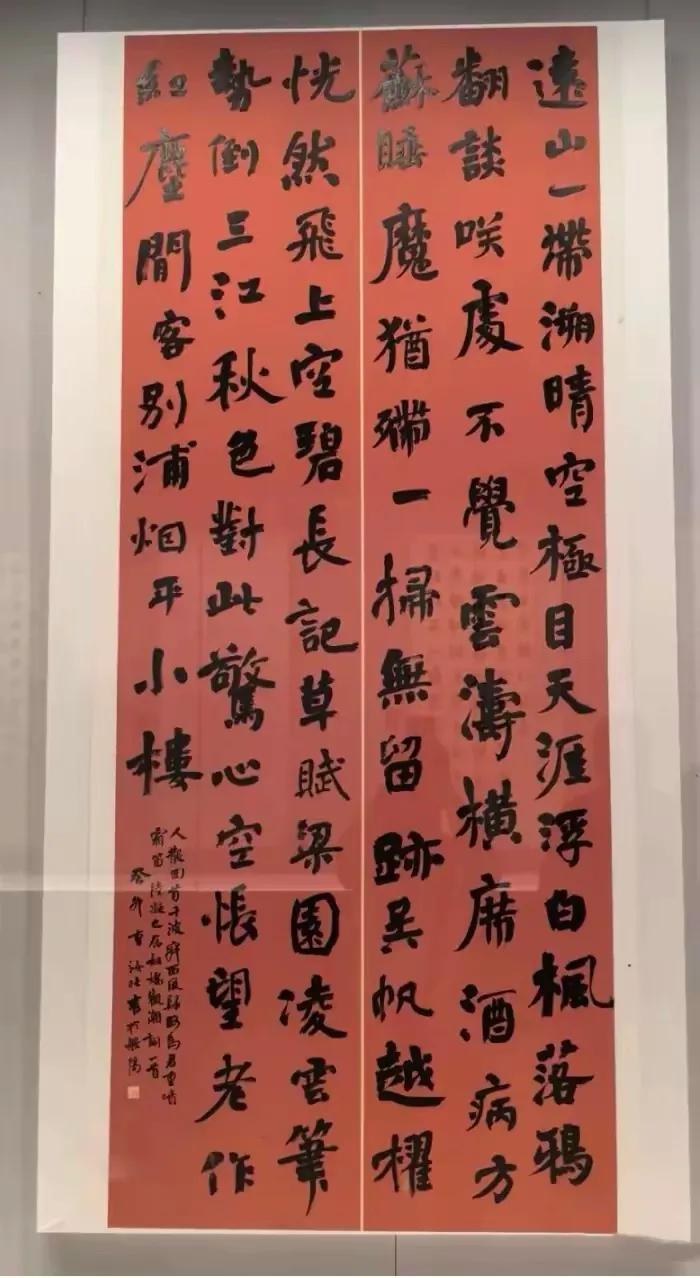 遠山一滯溯晴空極目天涯浮白楓落鴉
翻談咲處不覺雲濤橫席酒病方
蘇睡魔猶殢一掃無留跡吳帆越櫂
恍然飛上空碧長記草賦梁園凌雲筆
勢倒三江秋色對此驚心空悵望老作
紅塵閒客別浦烟平小樓
人散回首千波寂西風歸路為君重噴
霜笛陸凝之念奴嬌觀潮詞一首
癸卯書於